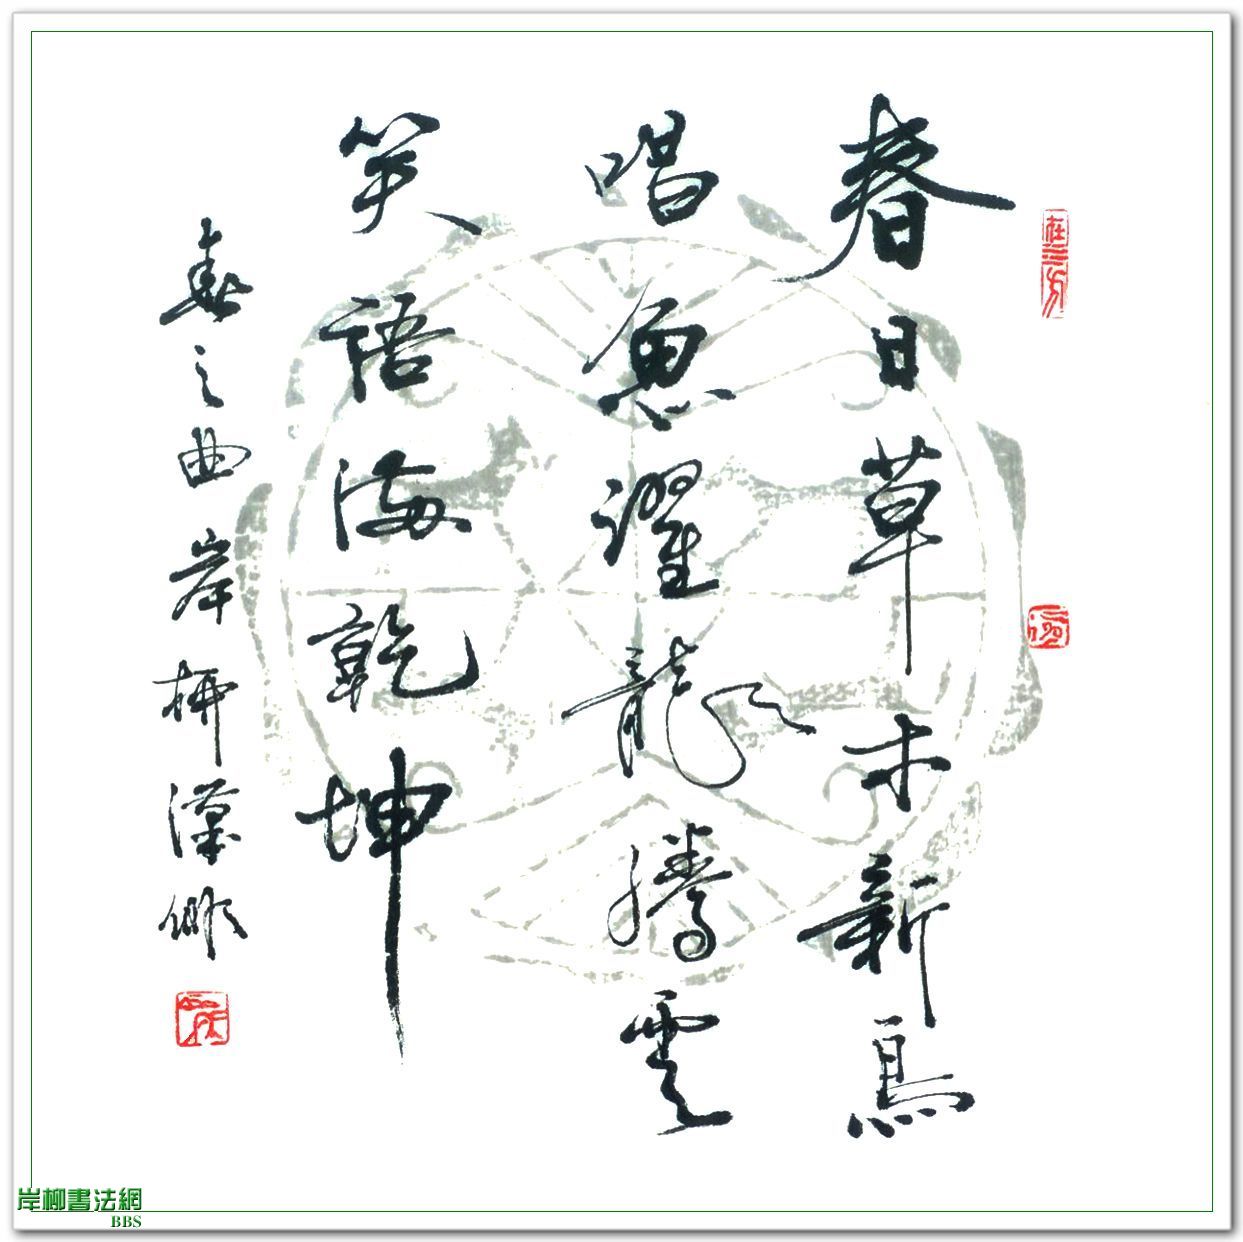 春日草木新鳥
唱魚躍龍騰雲
笑語海乾坤
春之曲岸柳漢卿
岸柳書法網
BBS